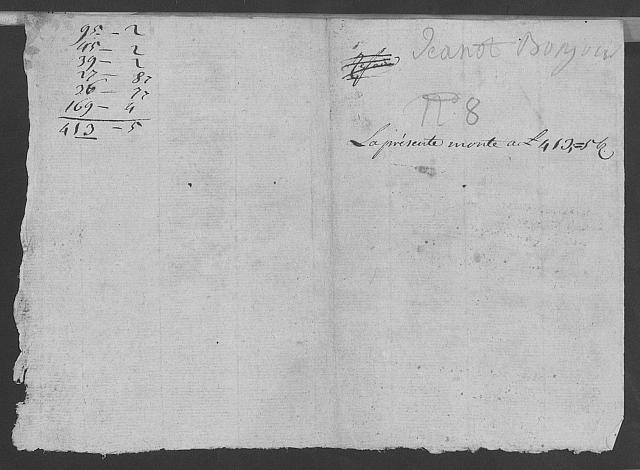 95 - 2
45 - 2
39 - 2
27 - 87
36 - 77
169 - 4
413 - 5
Jeanot Bonjour
N° 8
La présente monte a L 413,=5